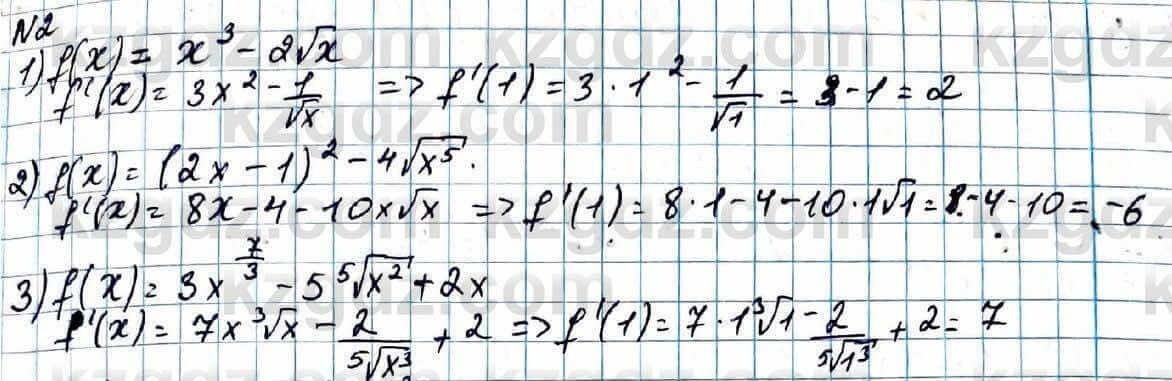 N2
1) f(x) = x³ - 2√x
f'(x) = 3x² - 1/√x => f'(1) = 3 · 1² - 1/√1 = 3 - 1 = 2
2) f(x) = (2x - 1)² - 4√x⁵.
f'(x) = 8x - 4 - 10x√x => f'(1) = 8 · 1 - 4 - 10 · 1√1 = 8 - 4 - 10 = -6
3) f(x) = 3x^(7/3) - 5 ⁵√x² + 2x
f'(x) = 7x ³√x - 2/⁵√x³ + 2 => f'(1) = 7 · 1 ³√1 - 2/⁵√1³ + 2 = 7
kzgdz.com